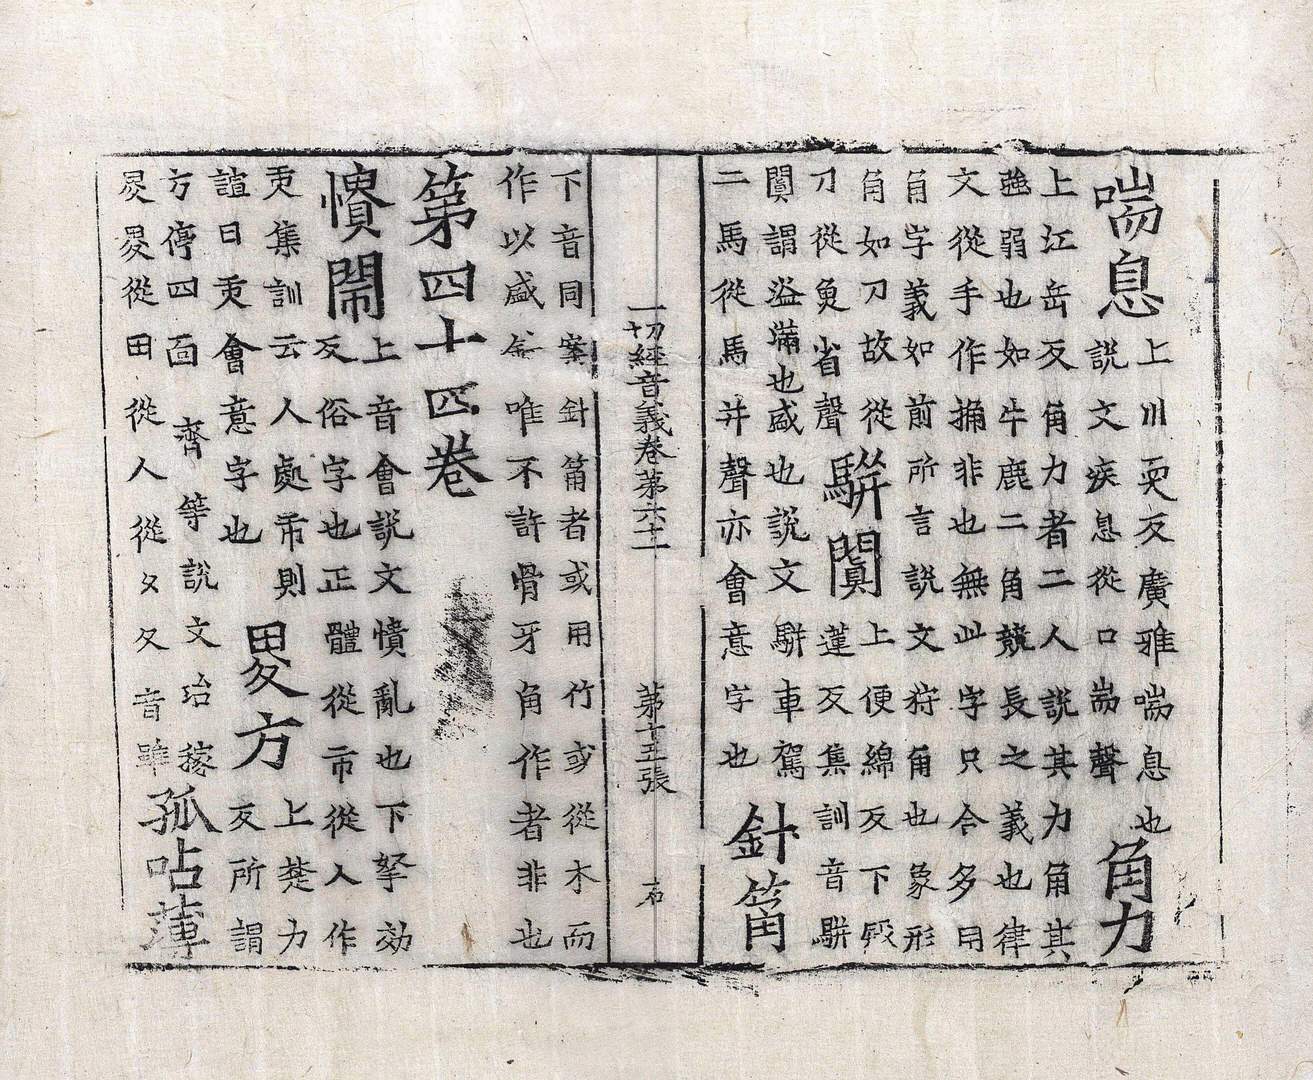 喘息
上川耎反廣雅喘息也
說文疾息從口耑聲
角力
上江岳反角力者二人說其力角其
強弱也如牛鹿二角競長之義也律
文從手作捔非也無此字只合多用
角字義如前所言說文狩角也象形
角如刀故從
刀從魚省聲
騈闐
上便綿反下殿
蓮反集訓音騈
闐謂溢滿也盛也說文騈車駕
二馬從馬并聲亦會意字也
針筩
一切經音義卷第六十一 第十五張 石
下音同案針筩者或用竹或從木而
作以盛唯不許骨牙角作者非也
第四十四卷
憒閙
上音會說文憒亂也下拏効
反俗字也正體從市從人作
㚓集訓云人處市則
諠曰㚓會意字也
畟方
上楚力
反所謂
方停四面齊等說文治稼
畟畟從田從人從夊夊音雖
孤呫薄